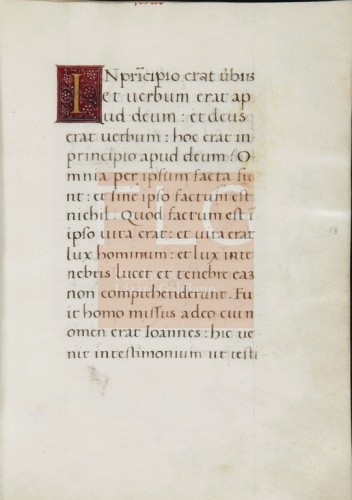 IN pr̃cipio erat ũbũ
et uerbum erat ap
ud deum : et deus
erat uerbum : hoc erat in
principio apud deum : O
mnia per ipsum facta su
nt : et sine ipso factum est
nichil. Quod factum est i
ipso uita erat : et uita erat
lux hominum : et lux in te
nebris lucet et tenebre eaz
non comprehenderunt. Fu
it homo missus a deo cui n
omen erat Ioannes : hic ue
nit in testimonium ut testi